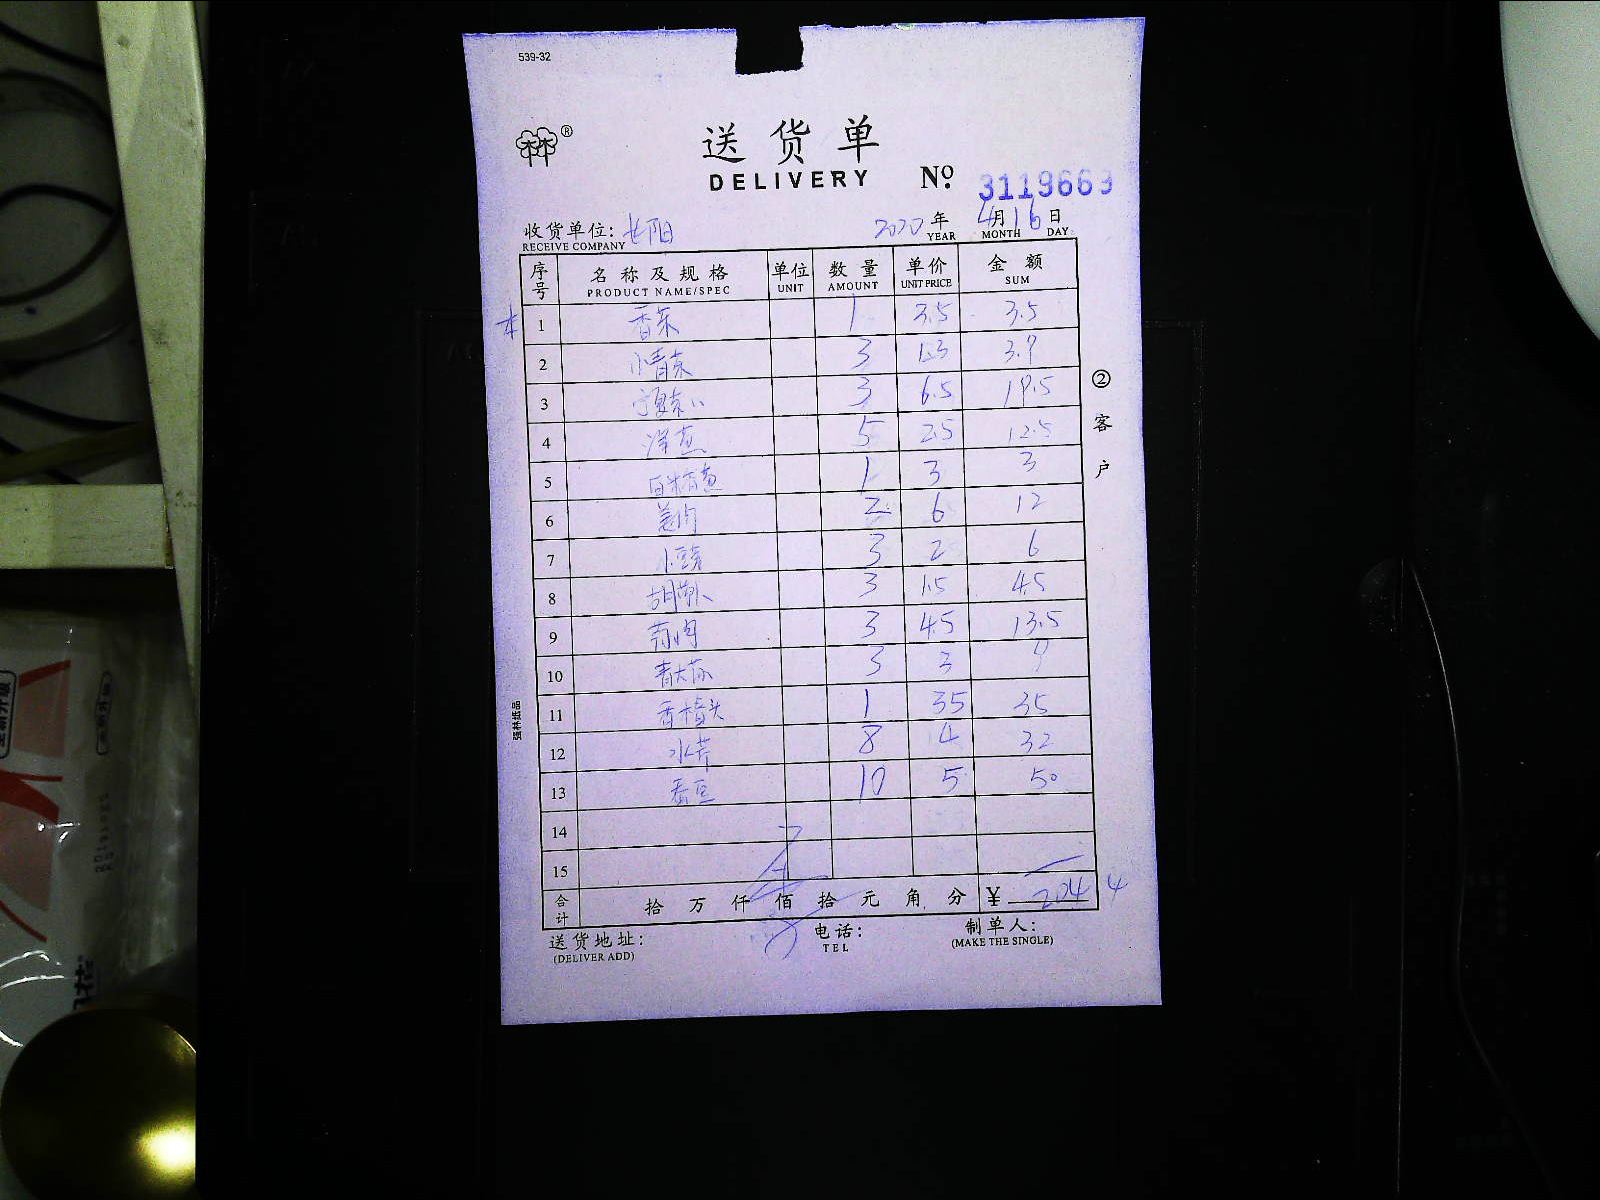 539-32
®
送货单
DELIVERY
No. 3119669
收货单位: 长阳 2020年 4月 16日
RECEIVE COMPANY YEAR MONTH DAY
序号 名称及规格 单位 数量 单价 金额
PRODUCT NAME/SPEC UNIT AMOUNT UNIT PRICE SUM
1 香菜 1 3.5 3.5
2 小青菜 3 1.3 3.9
3 宁夏菜心 3 6.5 19.5
4 洋葱 5 2.5 12.5
5 白米香葱 1 3 3
6 姜肉 2 6 12
7 小豆芽 3 2 6
8 胡萝卜 3 1.5 4.5
9 蒜肉 3 4.5 13.5
10 青大蒜 3 3 9
11 1 35 35
12 水芹 8 4 32
13 蚕豆 10 5 50
14
15
合计 拾 万 仟 佰 拾 元 角 分 ¥ 204.4
送货地址: 电话: 制单人:
(DELIVER ADD) TEL (MAKE THE SINGLE)
②客户
强林纸品